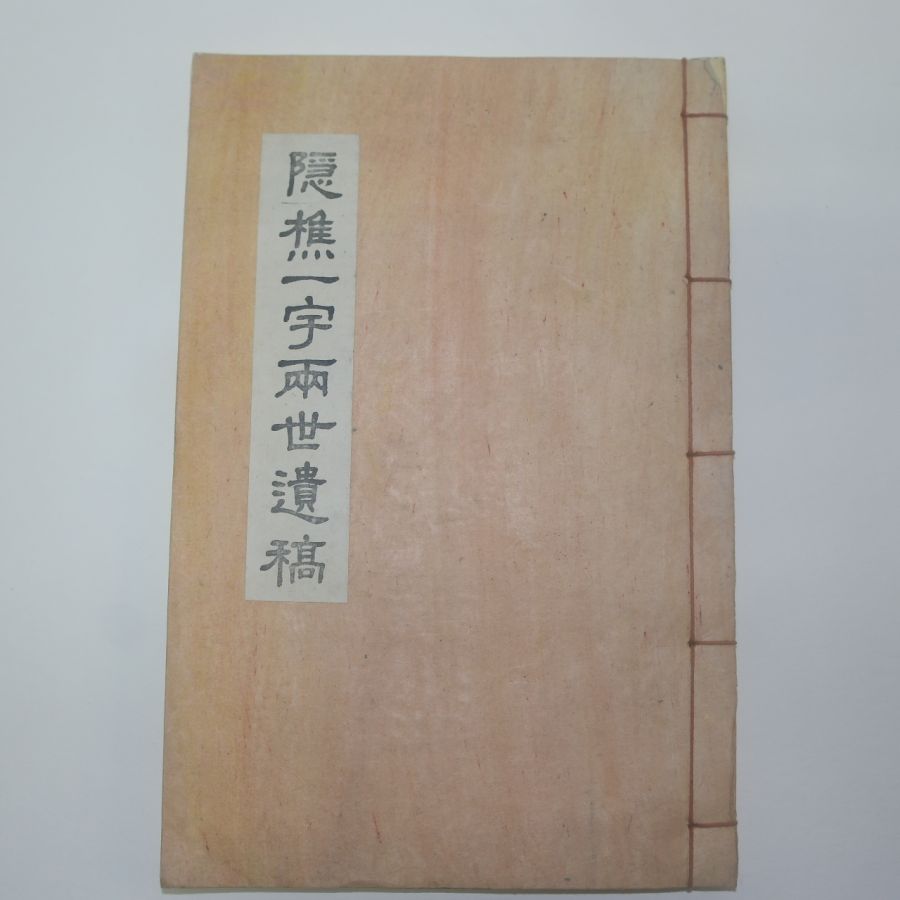 隱樵一宇兩世遺稿